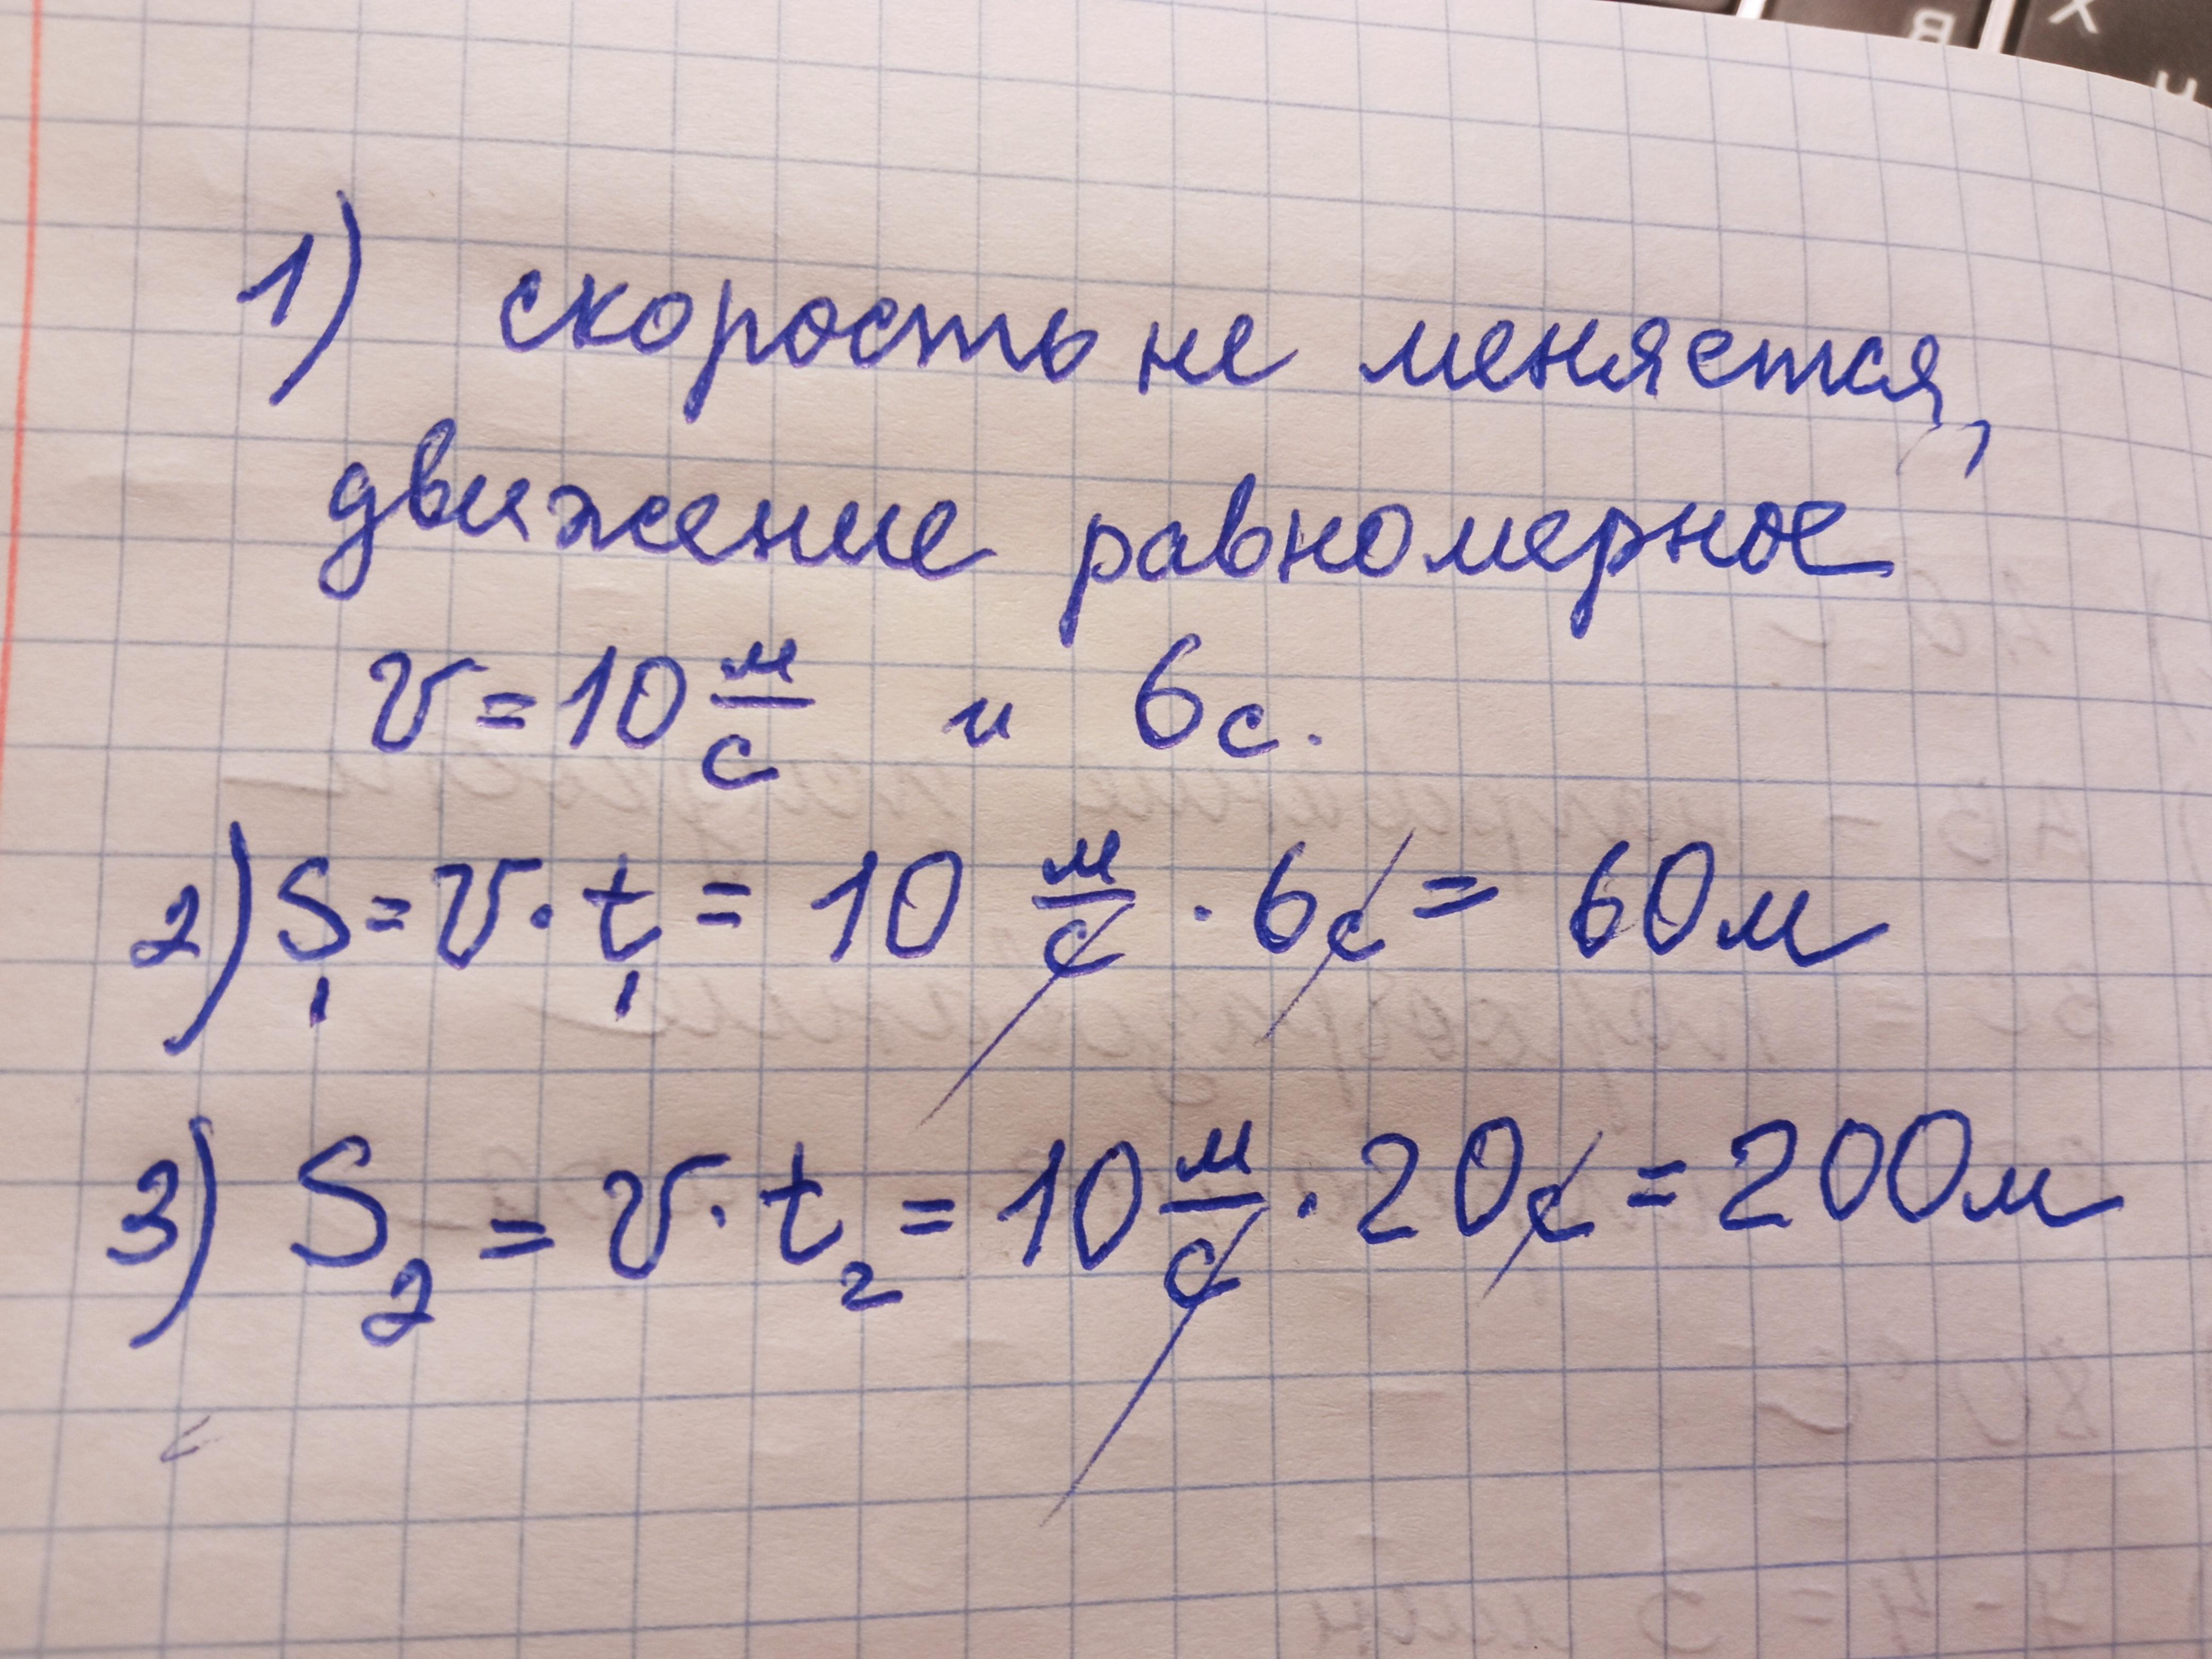 1) скорость не меняется,
движение равномерное
v = 10 м/с и 6 с.
2) S₁ = v · t₁ = 10 м/с · 6с = 60м
3) S₂ = v · t₂ = 10 м/с · 20с = 200м